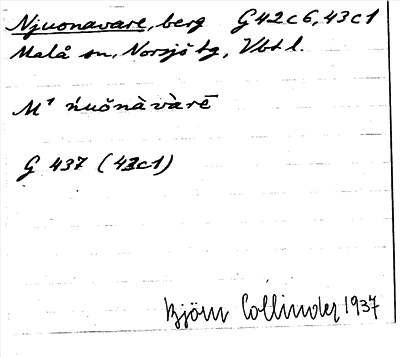 Njuonavare, berg G42c6, 43c1
Malå sn, Norsjö tg, Vbtl.
M¹ ńuŏnàvàrē
G 437 (43c1)
Björn Collinder 1937